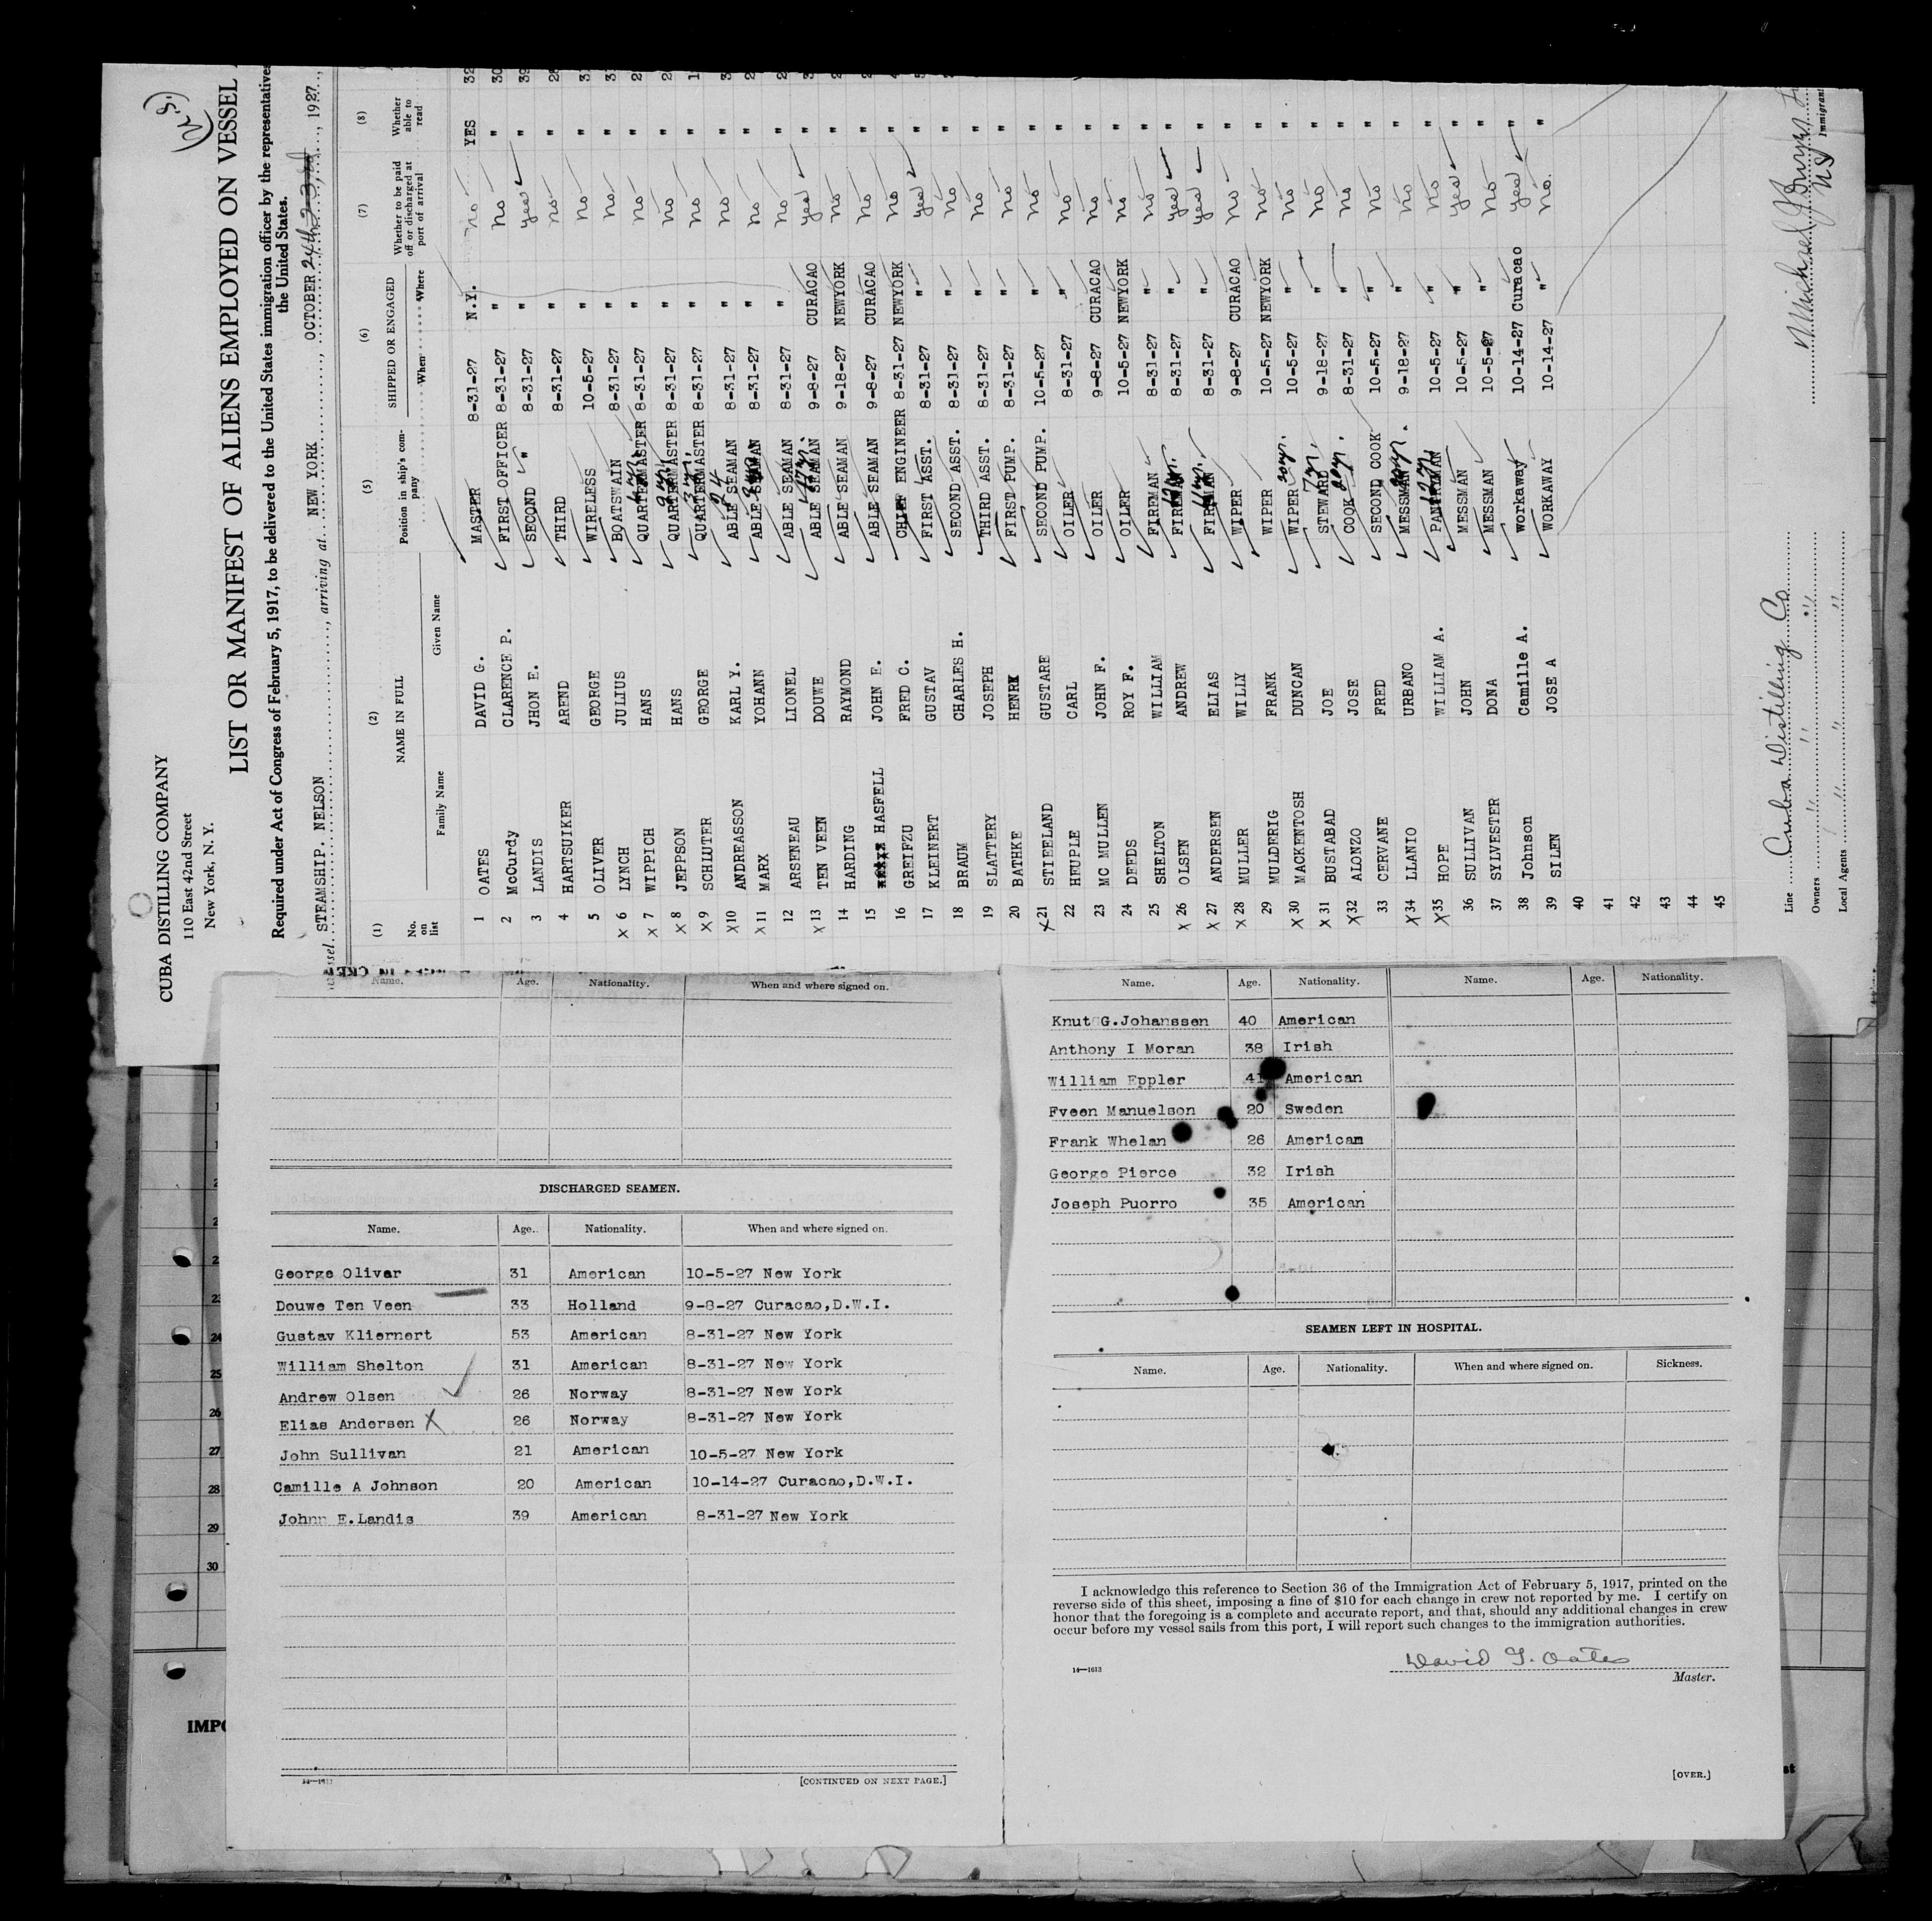 (U.S.)
CUBA DISTILLING COMPANY
110 East 42nd Street
New York, N. Y.
LIST OR MANIFEST OF ALIENS EMPLOYED ON VESSEL
Required under Act of Congress of February 5, 1917, to be delivered to the United States immigration officer by the representatives
the United States.
STEAMSHIP. NELSON, arriving at NEW YORK, OCTOBER 24th 23rd, 1927,
(1) (2) (5) (6) (7) (8)
No. on list NAME IN FULL Position in ship's company SHIPPED OR ENGAGED Whether to be paid off or discharged at port of arrival Whether able to read
Family Name Given Name When Where
1 OATES DAVID G. MASTER 8-31-27 N.Y. No YES 32
2 McCurdy CLARENCE P. FIRST OFFICER 8-31-27 " No " 30
3 LANDIS JHON E. SECOND " 8-31-27 " yes " 39
4 HARTSUIKER AREND THIRD 8-31-27 " no "
5 OLIVER GEORGE WIRELESS 10-5-27 " No "
X 6 LYNCH JULIUS BOATSWAIN 8-31-27 " No "
X 7 WIPPICH HANS QUARTERMASTER 8-31-27 " No "
X 8 JEPPSON HANS QUARTERMASTER 8-31-27 " No "
X 9 SCHLUTER GEORGE QUARTERMASTER 3 yr. 8-31-27 " No "
X 10 ANDREASSON KARL Y. ABLE SEAMAN 8-31-27 " No "
X 11 MARX YOHANN ABLE SEAMAN 8-31-27 " No "
12 ARSENEAU LIONEL ABLE SEAMAN 8-31-27 " No "
X 13 TEN VEEN DOUWE ABLE SEAMAN 9-8-27 CURACAO yes "
14 HARDING RAYMOND ABLE SEAMAN 9-18-27 NEWYORK No "
15 HASFELL JOHN E. ABLE SEAMAN 9-8-27 CURACAO No "
16 GREIFZU FRED C. CHIEF ENGINEER 8-31-27 NEWYORK No "
17 KLEINERT GUSTAV FIRST ASST. 8-31-27 " yes "
18 BRAUM CHARLES H. SECOND ASST. 8-31-27 " No "
19 SLATTERY JOSEPH THIRD ASST. 8-31-27 " No "
20 BATHKE HENRK FIRST PUMP. 8-31-27 " No "
X 21 STIEELAND GUSTARE SECOND PUMP. 10-5-27 " No "
22 HEUPLE CARL OILER 8-31-27 " No "
23 MC MULLEN JOHN F. OILER 9-8-27 CURACAO No "
24 DEEDS ROY F. OILER 10-5-27 NEWYORK No "
25 SHELTON WILLIAM FIREMAN 8-31-27 " No "
X 26 OLSEN ANDREW FIREMAN 8-31-27 " yes "
X 27 ANDERSEN ELIAS FIREMAN 8-31-27 " yes "
X 28 MULLER WILLY WIPER 9-8-27 CURACAO No "
29 MULDERIG FRANK WIPER 10-5-27 NEWYORK No "
X 30 MACKENTOSH DUNCAN WIPER 10-5-27 " No "
X 31 BUSTABAD JOE STEWARD 7 yr. 9-18-27 " No "
X 32 ALONZO JOSE COOK 8-31-27 " No "
33 CERVANE FRED SECOND COOK 10-5-27 " No "
X 34 LLANIO URBANO MESSMAN 9-18-27 " No "
X 35 HOPE WILLIAM A. PANTRIMAN 10-5-27 " No "
36 SULLIVAN JOHN MESSMAN 10-5-27 " yes "
37 SYLVESTER DONA MESSMAN 10-5-27 " No "
38 Johnson Camille A. workaway 10-14-27 Curacao yes "
39 SILEN JOSE A WORKAWAY 10-14-27 " No. "
40
41
42
43
44
45
Line Cuba Distilling Co
Owners " " "
Local Agents " " "
Immigrant
Name. Age. Nationality. When and where signed on.
DISCHARGED SEAMEN.
Name. Age. Nationality. When and where signed on.
George Oliver 31 American 10-5-27 New York
Douwe Ten Veen 33 Holland 9-8-27 Curacao,D.W.I.
Gustav Kliernert 53 American 8-31-27 New York
William Shelton 31 American 8-31-27 New York
Andrew Olsen 26 Norway 8-31-27 New York
Elias Andersen X 26 Norway 8-31-27 New York
John Sullivan 21 American 10-5-27 New York
Camille A Johnson 20 American 10-14-27 Curacao,D.W.I.
Johnn E.Landis 39 American 8-31-27 New York
[CONTINUED ON NEXT PAGE.]
Name. Age. Nationality. Name. Age. Nationality.
Knut G.Johanssen 40 American
Anthony I Moran 38 Irish
William Eppler 41 American
Fveen Manuelson 20 Sweden
Frank Whelan 26 American
George Pierce 32 Irish
Joseph Puorro 35 American
SEAMEN LEFT IN HOSPITAL.
Name. Age. Nationality. When and where signed on. Sickness.
I acknowledge this reference to Section 36 of the Immigration Act of February 5, 1917, printed on the
reverse side of this sheet, imposing a fine of $10 for each change in crew not reported by me. I certify on
honor that the foregoing is a complete and accurate report, and that, should any additional changes in crew
occur before my vessel sails from this port, I will report such changes to the immigration authorities.
David G. Oates
14—1613
Master.
[OVER.]
23
24
25
26
27
28
29
30
IMPO